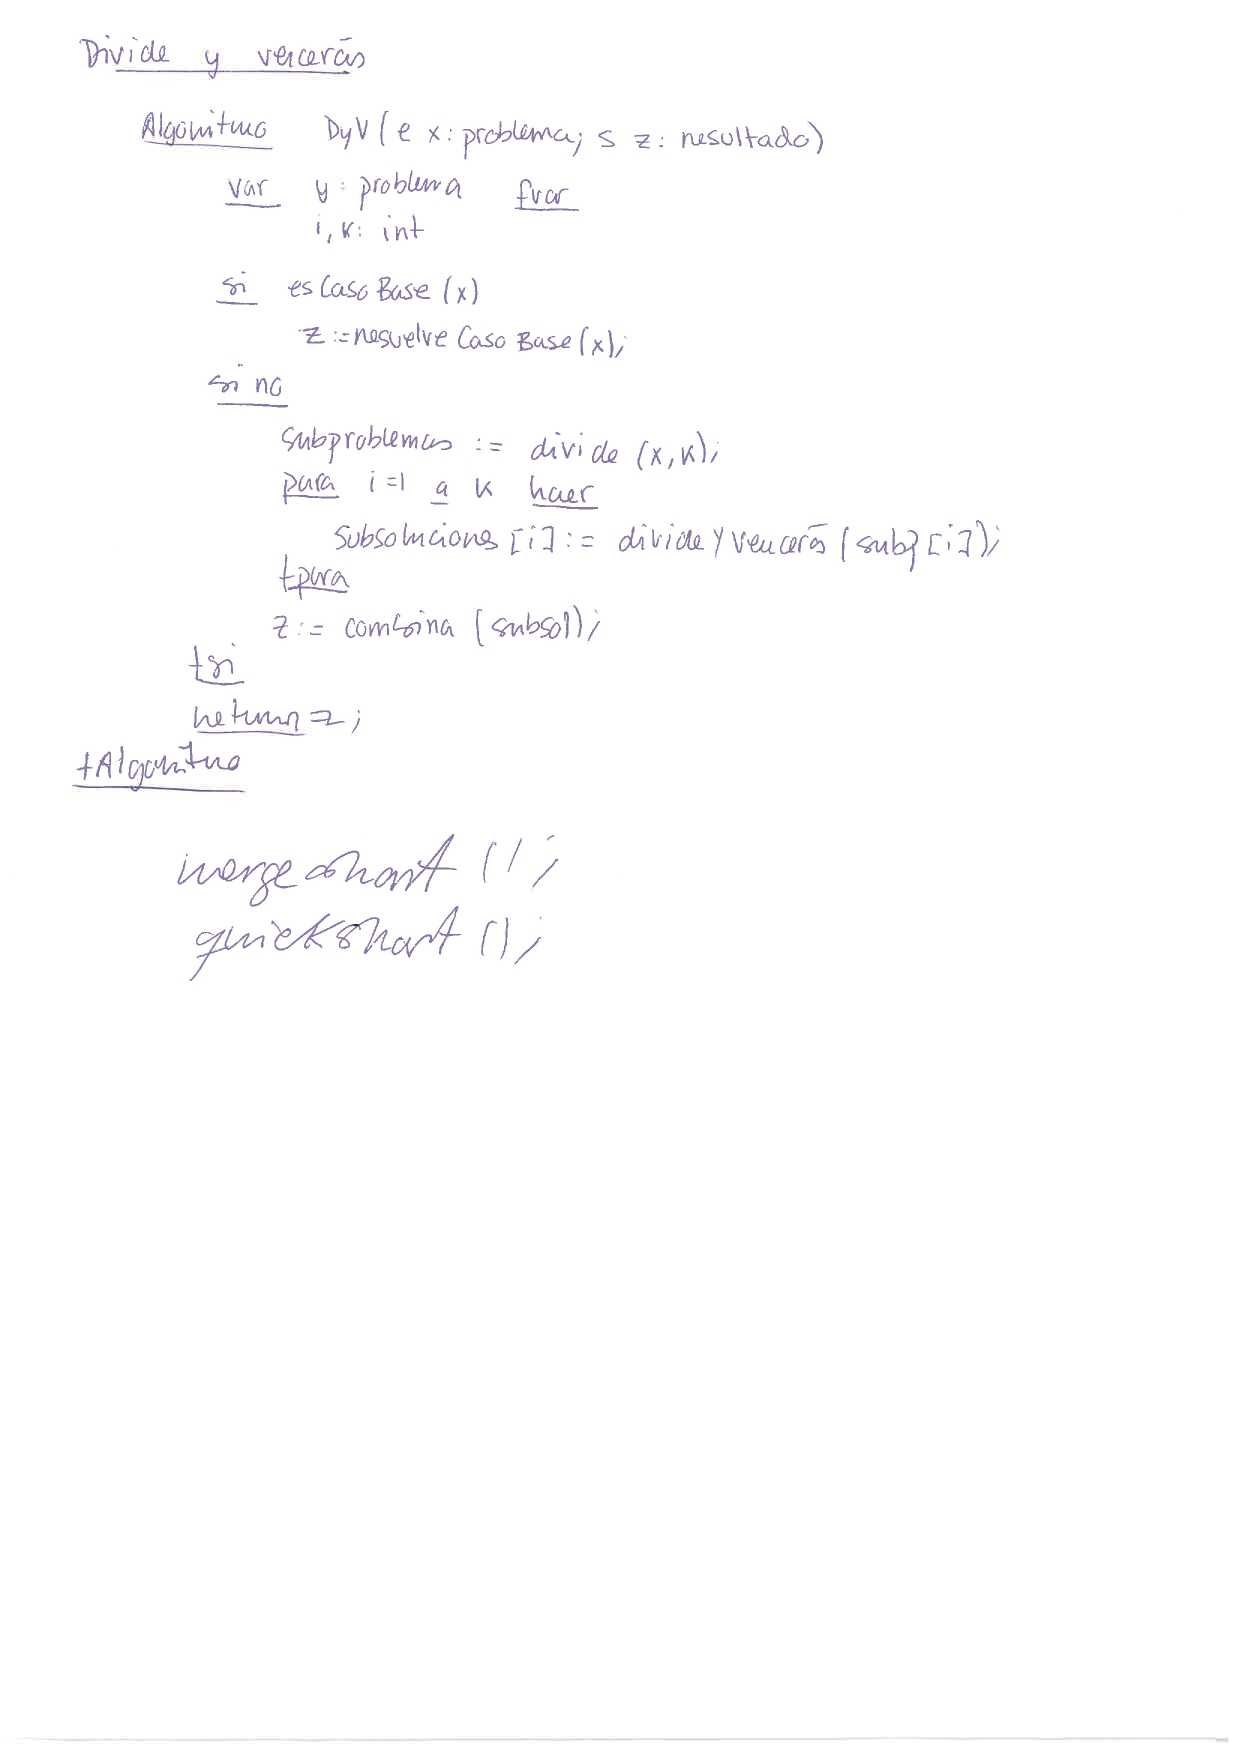 Divide y vencerás
Algoritmo DyV (e x: problema; s z: resultado)
var y: problema fvar
i, k: int
si es Caso Base (x)
z := resuelve Caso Base (x);
si no
subproblemas := divide (x, k);
para i=1 a k hacer
subsoluciones [i] := divide y vencerás (subp [i]);
fpara
z := combina (subsol);
fsi
return z;
fAlgoritmo
mergeshort ();
quickshort ();